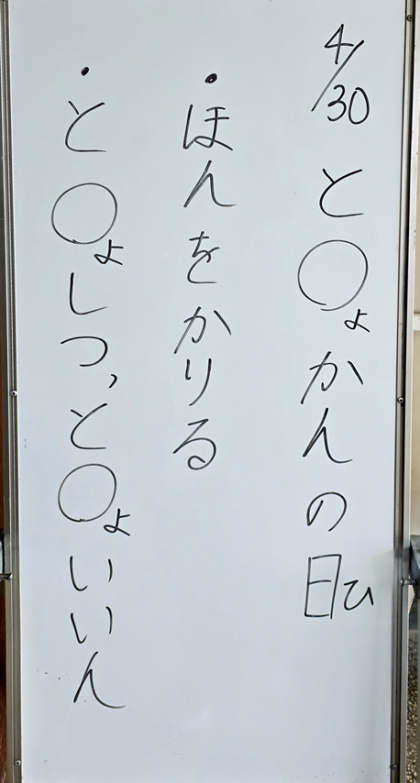 4/30 と○ょかんの日ひ
・ほんをかりる
・と○ょしつ、と○ょいいん